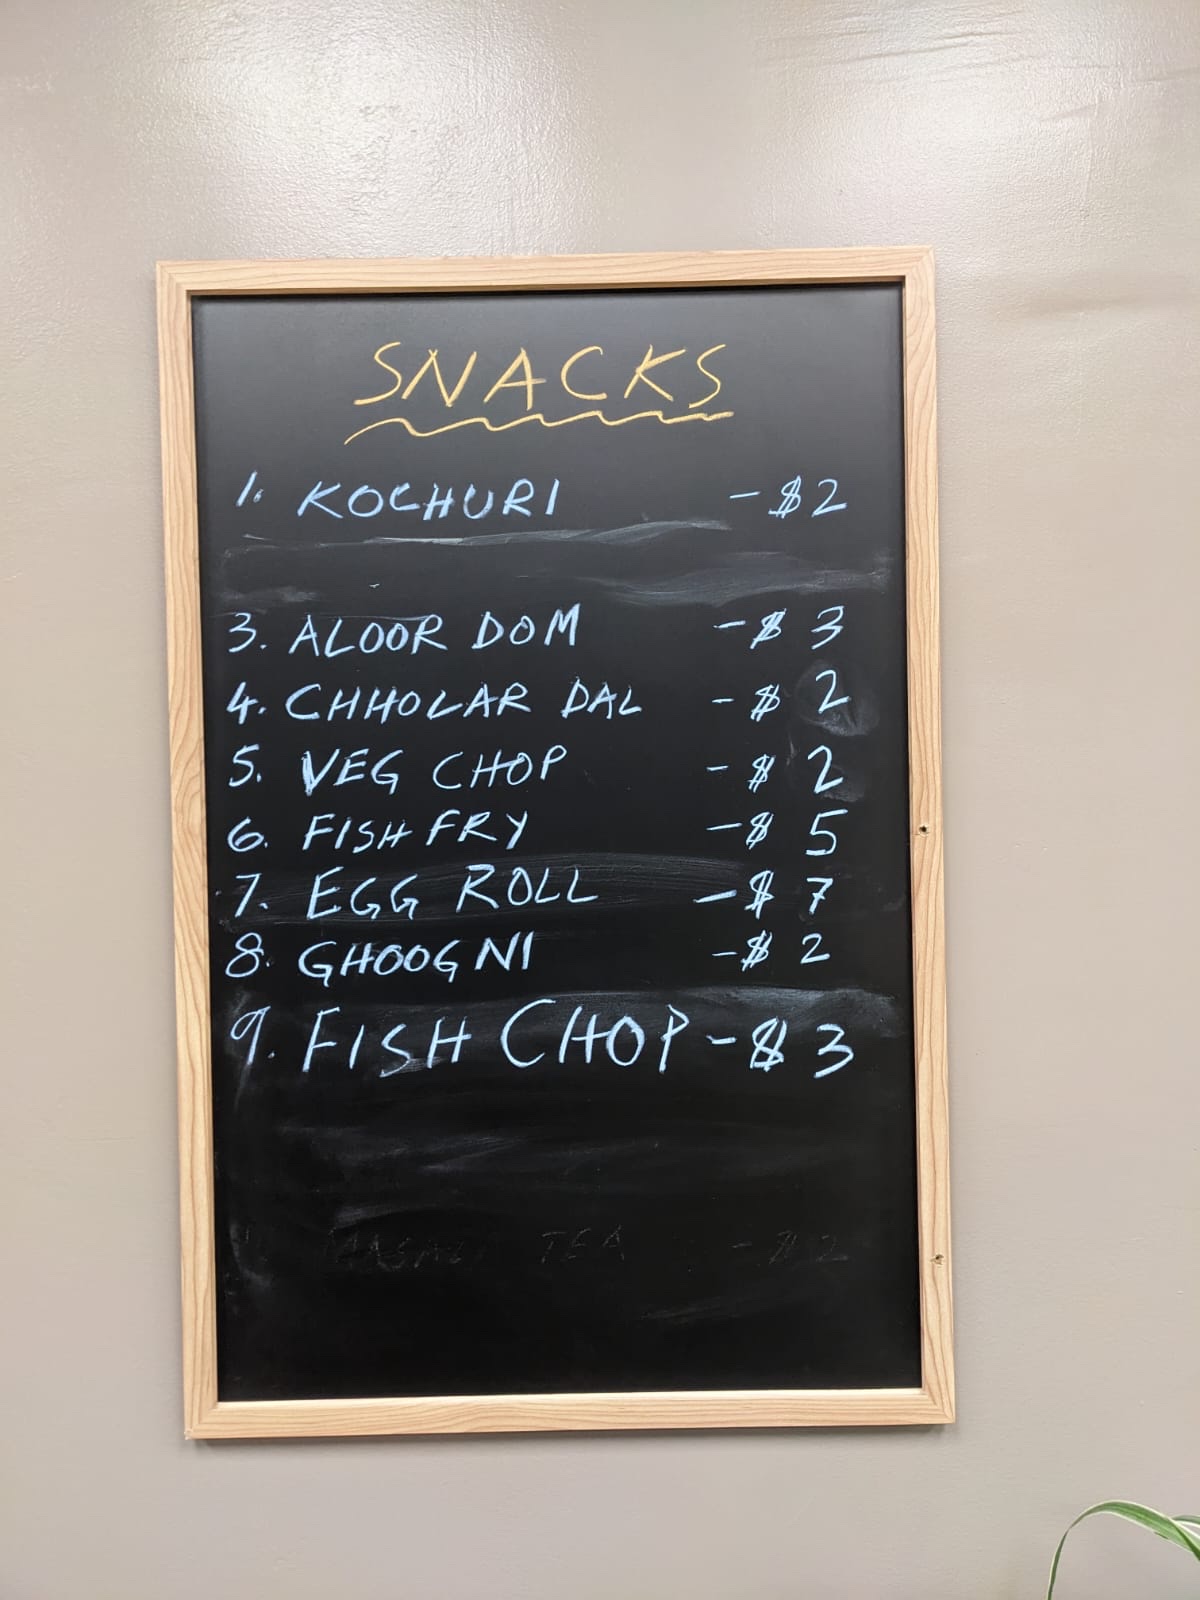 SNACKS
1. KOCHURI - $2
3. ALOOR DOM - $ 3
4. CHHOLAR DAL - $ 2
5. VEG CHOP - $ 2
6. FISH FRY - $ 5
7. EGG ROLL - $ 7
8. GHOOGNI - $ 2
9. FISH CHOP - $ 3
TEA - $2